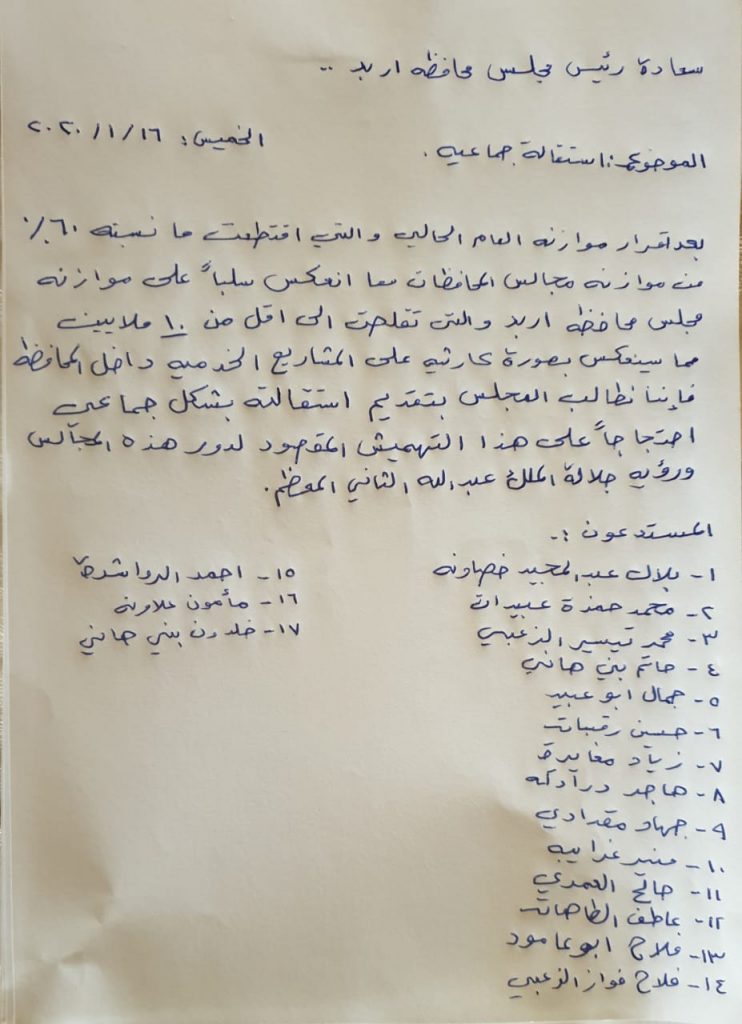 سعادة رئيس مجلس محافظه اربد ..
الخميس: ٢٠٢٠/١/١٦
الموضوع: استقالة جماعيه .
بعد اقرار موازنه العام الحالي والتي اقتطعت ما نسبته ٦٠٪
من موازنه مجالس المحافظات مما انعكس سلباً على موازنه
مجلس محافظه اربد والتي تقلصت الى اقل من ١٠ ملايين
مما سينعكس بصورة كارثيه على المشاريع الخدميه داخل المحافظه
فإننا نطالب المجلس بتقديم استقالته بشكل جماعي
احتجاجاً على هذا التهميش المقصود لدور هذه المجالس
ورؤيه جلالة الملك عبدالله الثاني المعظم.
المستدعون :-
١- بلال عبد المجيد خصاونه
٢- محمد حمزة عبيدات
٣- محمد تيسير الزعبي
٤- حاتم بني هاني
٥- جمال ابو عبيد
٦- حسين رقيبات
٧- زياد مغايرة
٨- ماجد درادكه
٩- جهاد مقدادي
١٠- منير غرايبه
١١- صالح العمري
١٢- عاطف الطاهات
١٣- فلاح ابو عامود
١٤- فلاح فواز الزعبي
١٥- احمد الرواشدة
١٦- مأمون علاونه
١٧- خلدون بني هاني